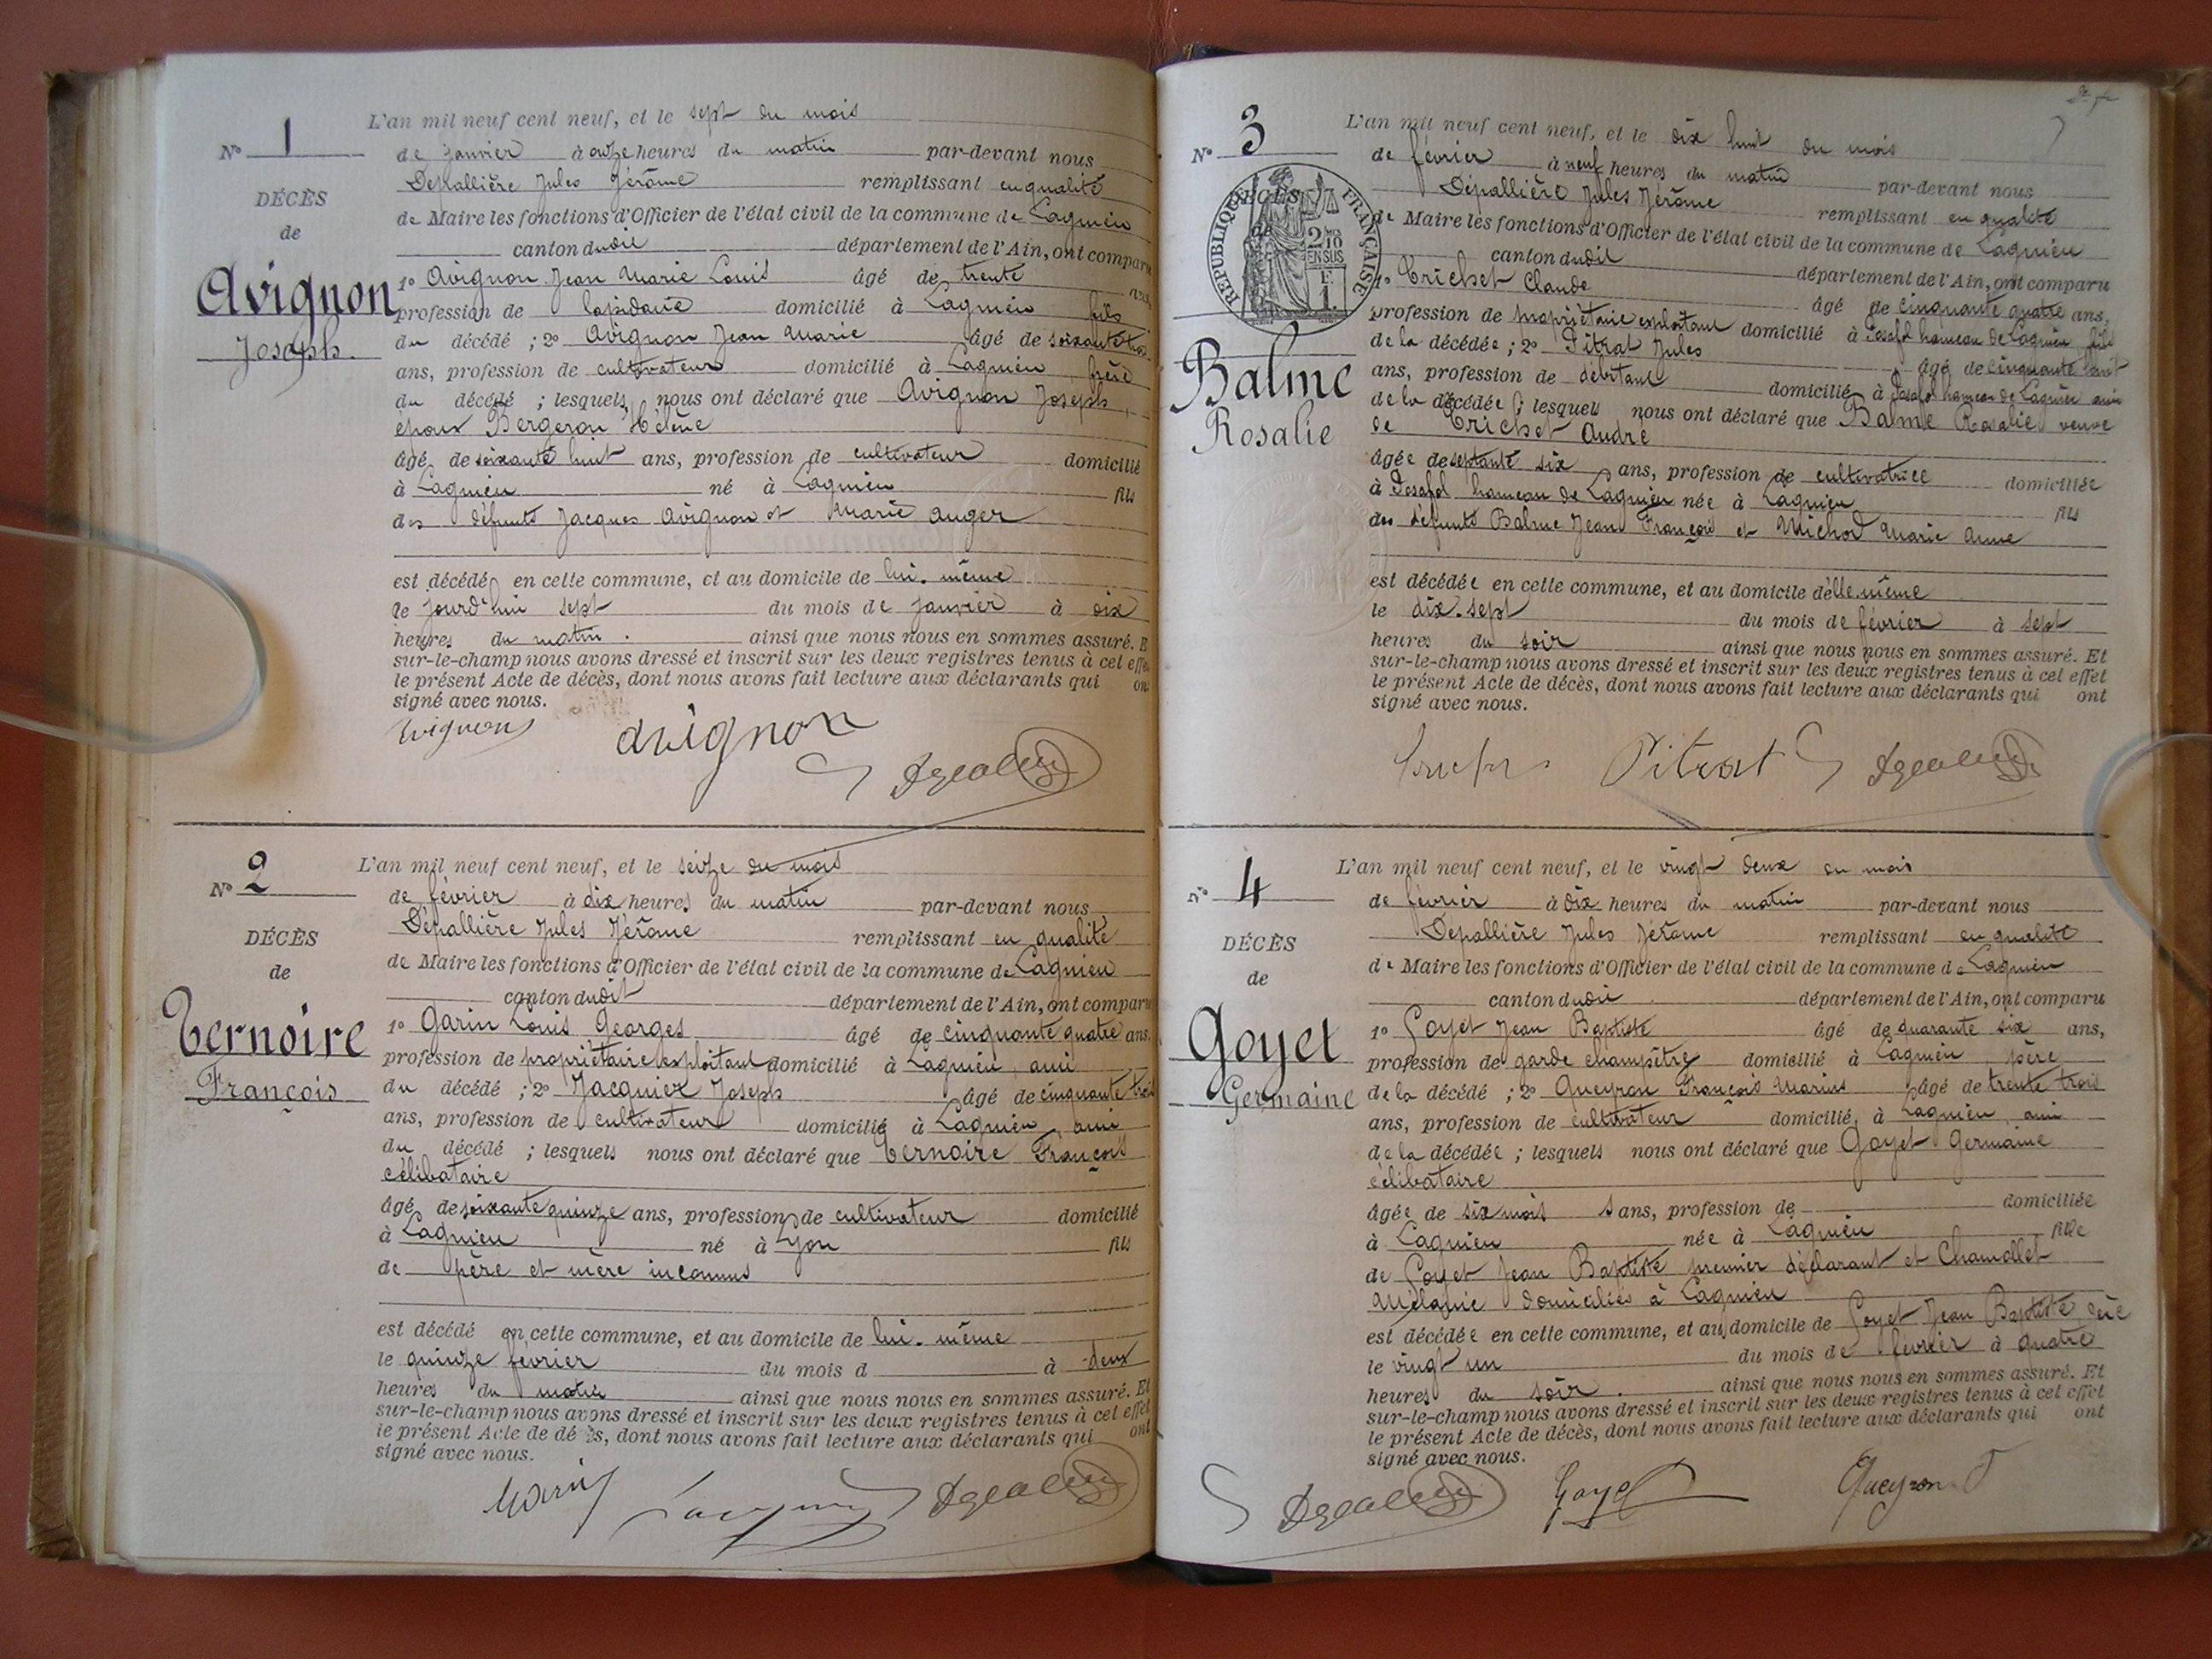 N° 1
DÉCÈS
de
Avignon
Joseph.
L'an mil neuf cent neuf, et le sept du mois
de janvier à onze heures du matin par-devant nous
Dépallière Jules Jérôme remplissant en qualité
de Maire les fonctions d'Officier de l'état civil de la commune de Lagnieu
canton dudit département de l'Ain, ont comparu
1° Avignon Jean Marie Louis âgé de trente ans,
profession de lapidaire domicilié à Lagnieu fils
du décédé ; 2° Avignon Jean Marie âgé de soixante
ans, profession de cultivateur domicilié à Lagnieu frère
du décédé ; lesquels nous ont déclaré que Avignon Joseph,
époux Bergeron Hélène
âgé de soixante huit ans, profession de cultivateur domicilié
à Lagnieu né à Lagnieu fils
des défunts Jacques Avignon et Marie Auger
est décédé en cette commune, et au domicile de lui-même
le jourd'hui sept du mois de janvier à dix
heures du matin. ainsi que nous nous en sommes assuré. E
sur-le-champ nous avons dressé et inscrit sur les deux registres tenus à cet effe
le présent Acte de décès, dont nous avons fait lecture aux déclarants qui ont
signé avec nous.
Avignon avignon
N° 2
DÉCÈS
de
Ternoire
François
L'an mil neuf cent neuf, et le seize du mois
de février à dix heures du matin par-devant nous
Dépallière Jules Jérôme remplissant en qualité
de Maire les fonctions d'Officier de l'état civil de la commune de Lagnieu
canton dudit département de l'Ain, ont comparu
1° Garin Louis Georges âgé de cinquante quatre ans.
profession de propriétaire exploitant domicilié à Lagnieu, ami
du décédé ; 2° Jacquier Joseph âgé de cinquante trois
ans, profession de cultivateur domicilié à Lagnieu, ami
du décédé ; lesquels nous ont déclaré que Ternoire François
célibataire
âgé de soixante quinze ans, profession de cultivateur domicilié
à Lagnieu né à Lyon fils
de père et mère inconnus
est décédé en cette commune, et au domicile de lui-même
le quinze février du mois d à deux
heures du matin ainsi que nous nous en sommes assuré. Et
sur-le-champ nous avons dressé et inscrit sur les deux registres tenus à cet effet
le présent Acte de dé ès, dont nous avons fait lecture aux déclarants qui ont
signé avec nous.
Garin Jacquier
N° 3
DÉCÈS
de
RÉPUBLIQUE FRANÇAISE
2/10 EN SUS
1 F.
Balme
Rosalie
L'an mil neuf cent neuf, et le dix huit du mois
de février à neuf heures du matin par-devant nous
Dépallière Jules Jérôme remplissant en qualité
de Maire les fonctions d'Officier de l'état civil de la commune de Lagnieu
canton dudit département de l'Ain, ont comparu
1° Trichet Claude âgé de cinquante quatre ans,
profession de propriétaire exploitant domicilié à Posafol hameau de Lagnieu fils
de la décédée ; 2° Pitrat Jules âgé de cinquante huit
ans, profession de débitant domicilié à Posafol hameau de Lagnieu ami
de la décédée ; lesquels nous ont déclaré que Balme Rosalie, veuve
de Trichet André
âgée de septante six ans, profession de cultivatrice domiciliée
à Posafol hameau de Lagnieu née à Lagnieu fils
des défunts Balme Jean François et Michod Marie Anne
est décédée en cette commune, et au domicile d'elle même
le dix-sept du mois de février à sept
heures du soir ainsi que nous nous en sommes assuré. Et
sur-le-champ nous avons dressé et inscrit sur les deux registres tenus à cet effet
le présent Acte de décès, dont nous avons fait lecture aux déclarants qui ont
signé avec nous.
Pitrat
N° 4
DÉCÈS
de
Goyet
Germaine
L'an mil neuf cent neuf, et le vingt deux du mois
de février à dix heures du matin par-devant nous
Dépallière Jules Jérôme remplissant en qualité
de Maire les fonctions d'Officier de l'état civil de la commune de Lagnieu
canton dudit département de l'Ain, ont comparu
1° Goyet Jean Baptiste âgé de quarante six ans,
profession de garde champêtre domicilié à Lagnieu, père
de la décédé ; 2° Queyron François Marius âgé de trente trois
ans, profession de cultivateur domicilié à Lagnieu, ami
de la décédée ; lesquels nous ont déclaré que Goyet Germaine
célibataire
âgée de six mois sans, profession de domiciliée
à Lagnieu née à Lagnieu fille
de Goyet Jean Baptiste premier déclarant et Chamollet
Mélanie domiciliés à Lagnieu
est décédée en cette commune, et au domicile de Goyet Jean Baptiste père
le vingt un du mois de février à quatre
heures du soir. ainsi que nous nous en sommes assuré. Et
sur-le-champ nous avons dressé et inscrit sur les deux registres tenus à cet effet
le présent Acte de décès, dont nous avons fait lecture aux déclarants qui ont
signé avec nous.
Goyet Queyron F